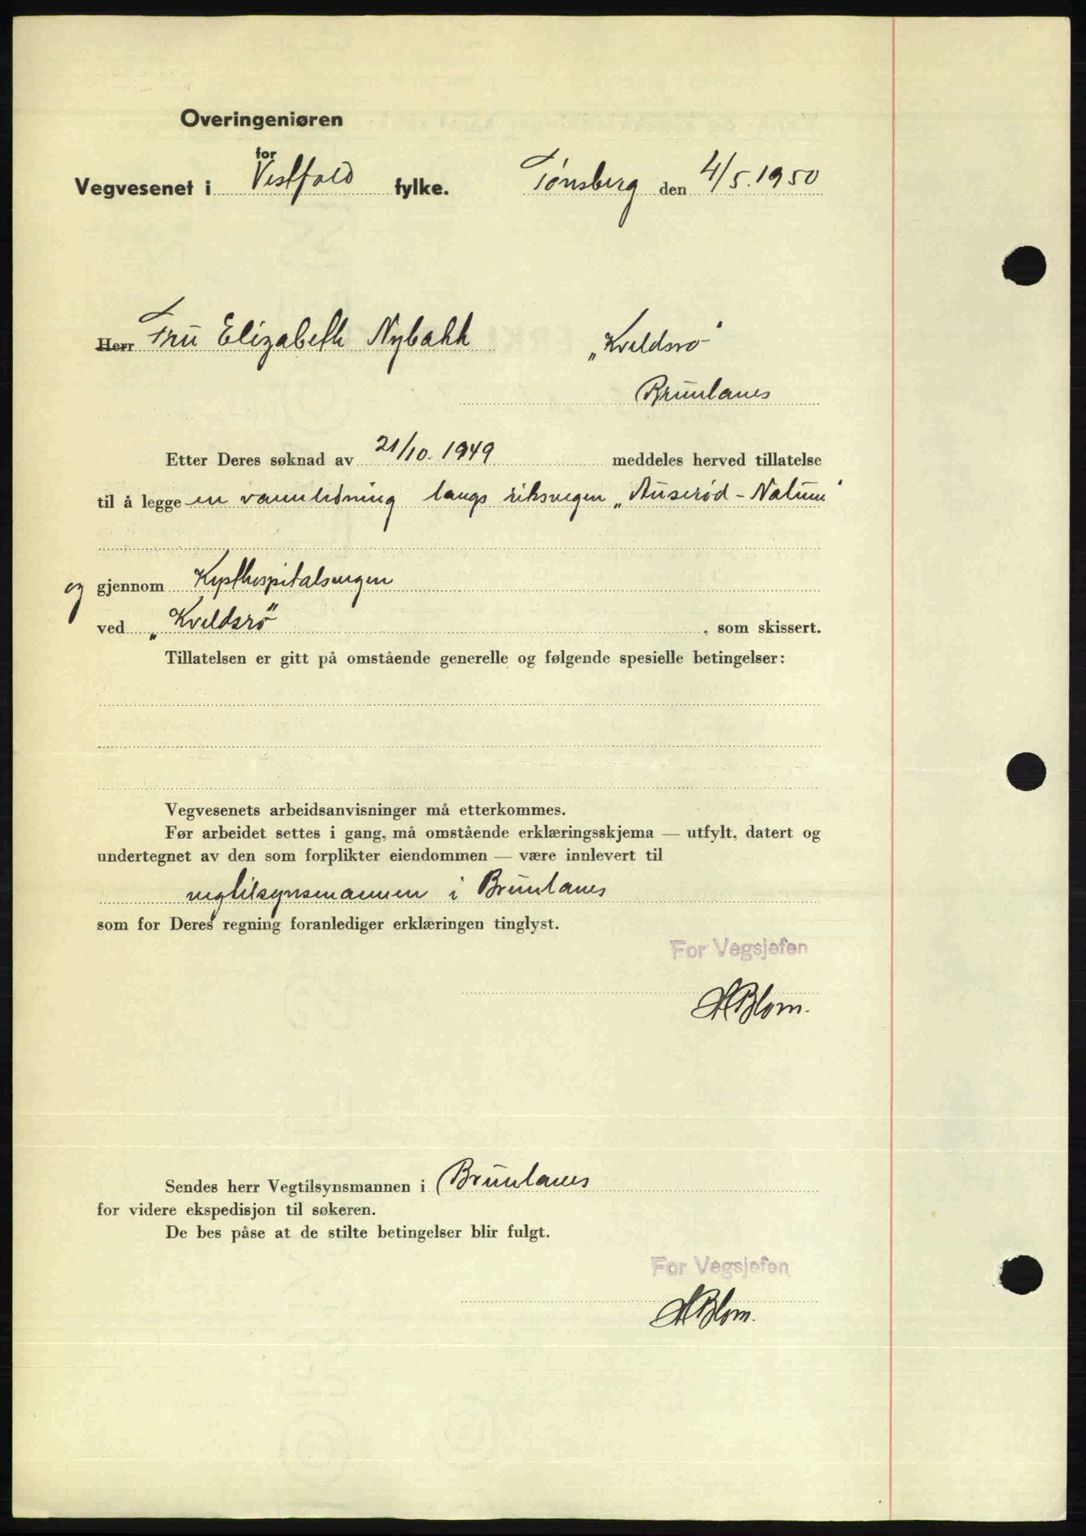 Overingeniøren
for
Vegvesenet i Vestfold fylke. Tønsberg den 4/5.1950
Herr Fru Elizabeth Nybakk "Kveldsro"
Brunlanes
Etter Deres søknad av 21/10.1949 meddeles herved tillatelse
til å legge en vannledning langs riksvegen „Auserød - Nalum"
og gjennom Kysthospitalsvegen
ved „Kveldsrø" , som skissert.
Tillatelsen er gitt på omstående generelle og følgende spesielle betingelser:
Vegvesenets arbeidsanvisninger må etterkommes.
Før arbeidet settes i gang, må omstående erklæringsskjema — utfylt, datert og
undertegnet av den som forplikter eiendommen — være innlevert til
vegtilsynsmannen i Brunlanes
som for Deres regning foranlediger erklæringen tinglyst.
For Vegsjefen
HBlom.
Sendes herr Vegtilsynsmannen i Brunlanes
for videre ekspedisjon til søkeren.
De bes påse at de stilte betingelser blir fulgt.
For Vegsjefen
HBlom.